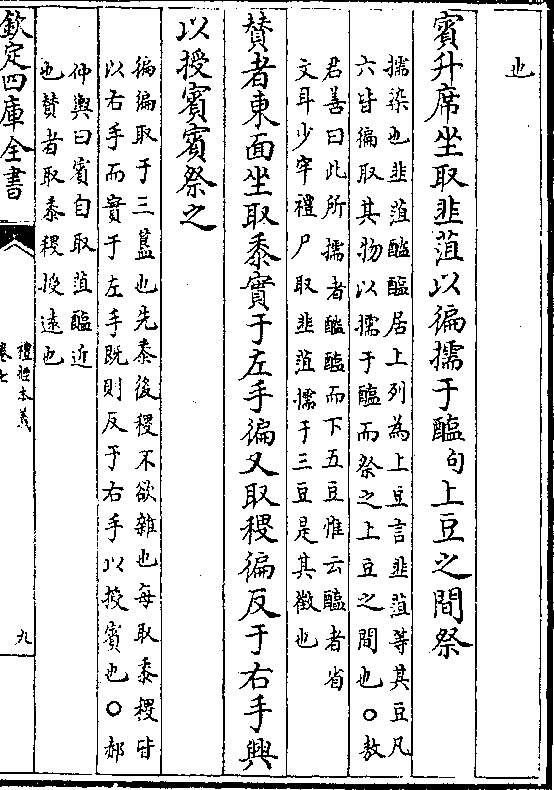 也
賓升席坐取韭菹以徧擩于醓句上豆之間祭
擩染也韭菹醓醢居上列為上豆言韭菹等其豆凡
六皆徧取其物以擩于醢而祭之上豆之間也○敖
君善曰此所擩者醓醢而下五豆惟云醢者省
文耳少牢禮尸取韭菹擩于三豆是其徵也
賛者東面坐取黍實于左手徧又取稷徧反于右手興
以授賓賓祭之
徧徧取于三簋也先黍後稷不欲雜也每取黍稷皆
以右手而實于左手既則反于右手以授賓也○郝
仲輿曰賓自取菹醢近
也賛者取黍稷授遠也
欽定四庫全書
卷七
九